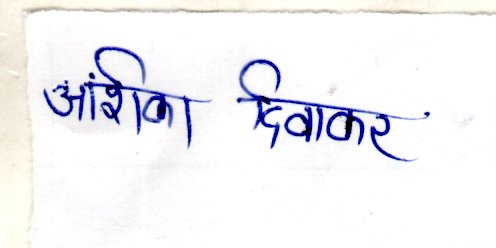 आंशिका दिवाकर